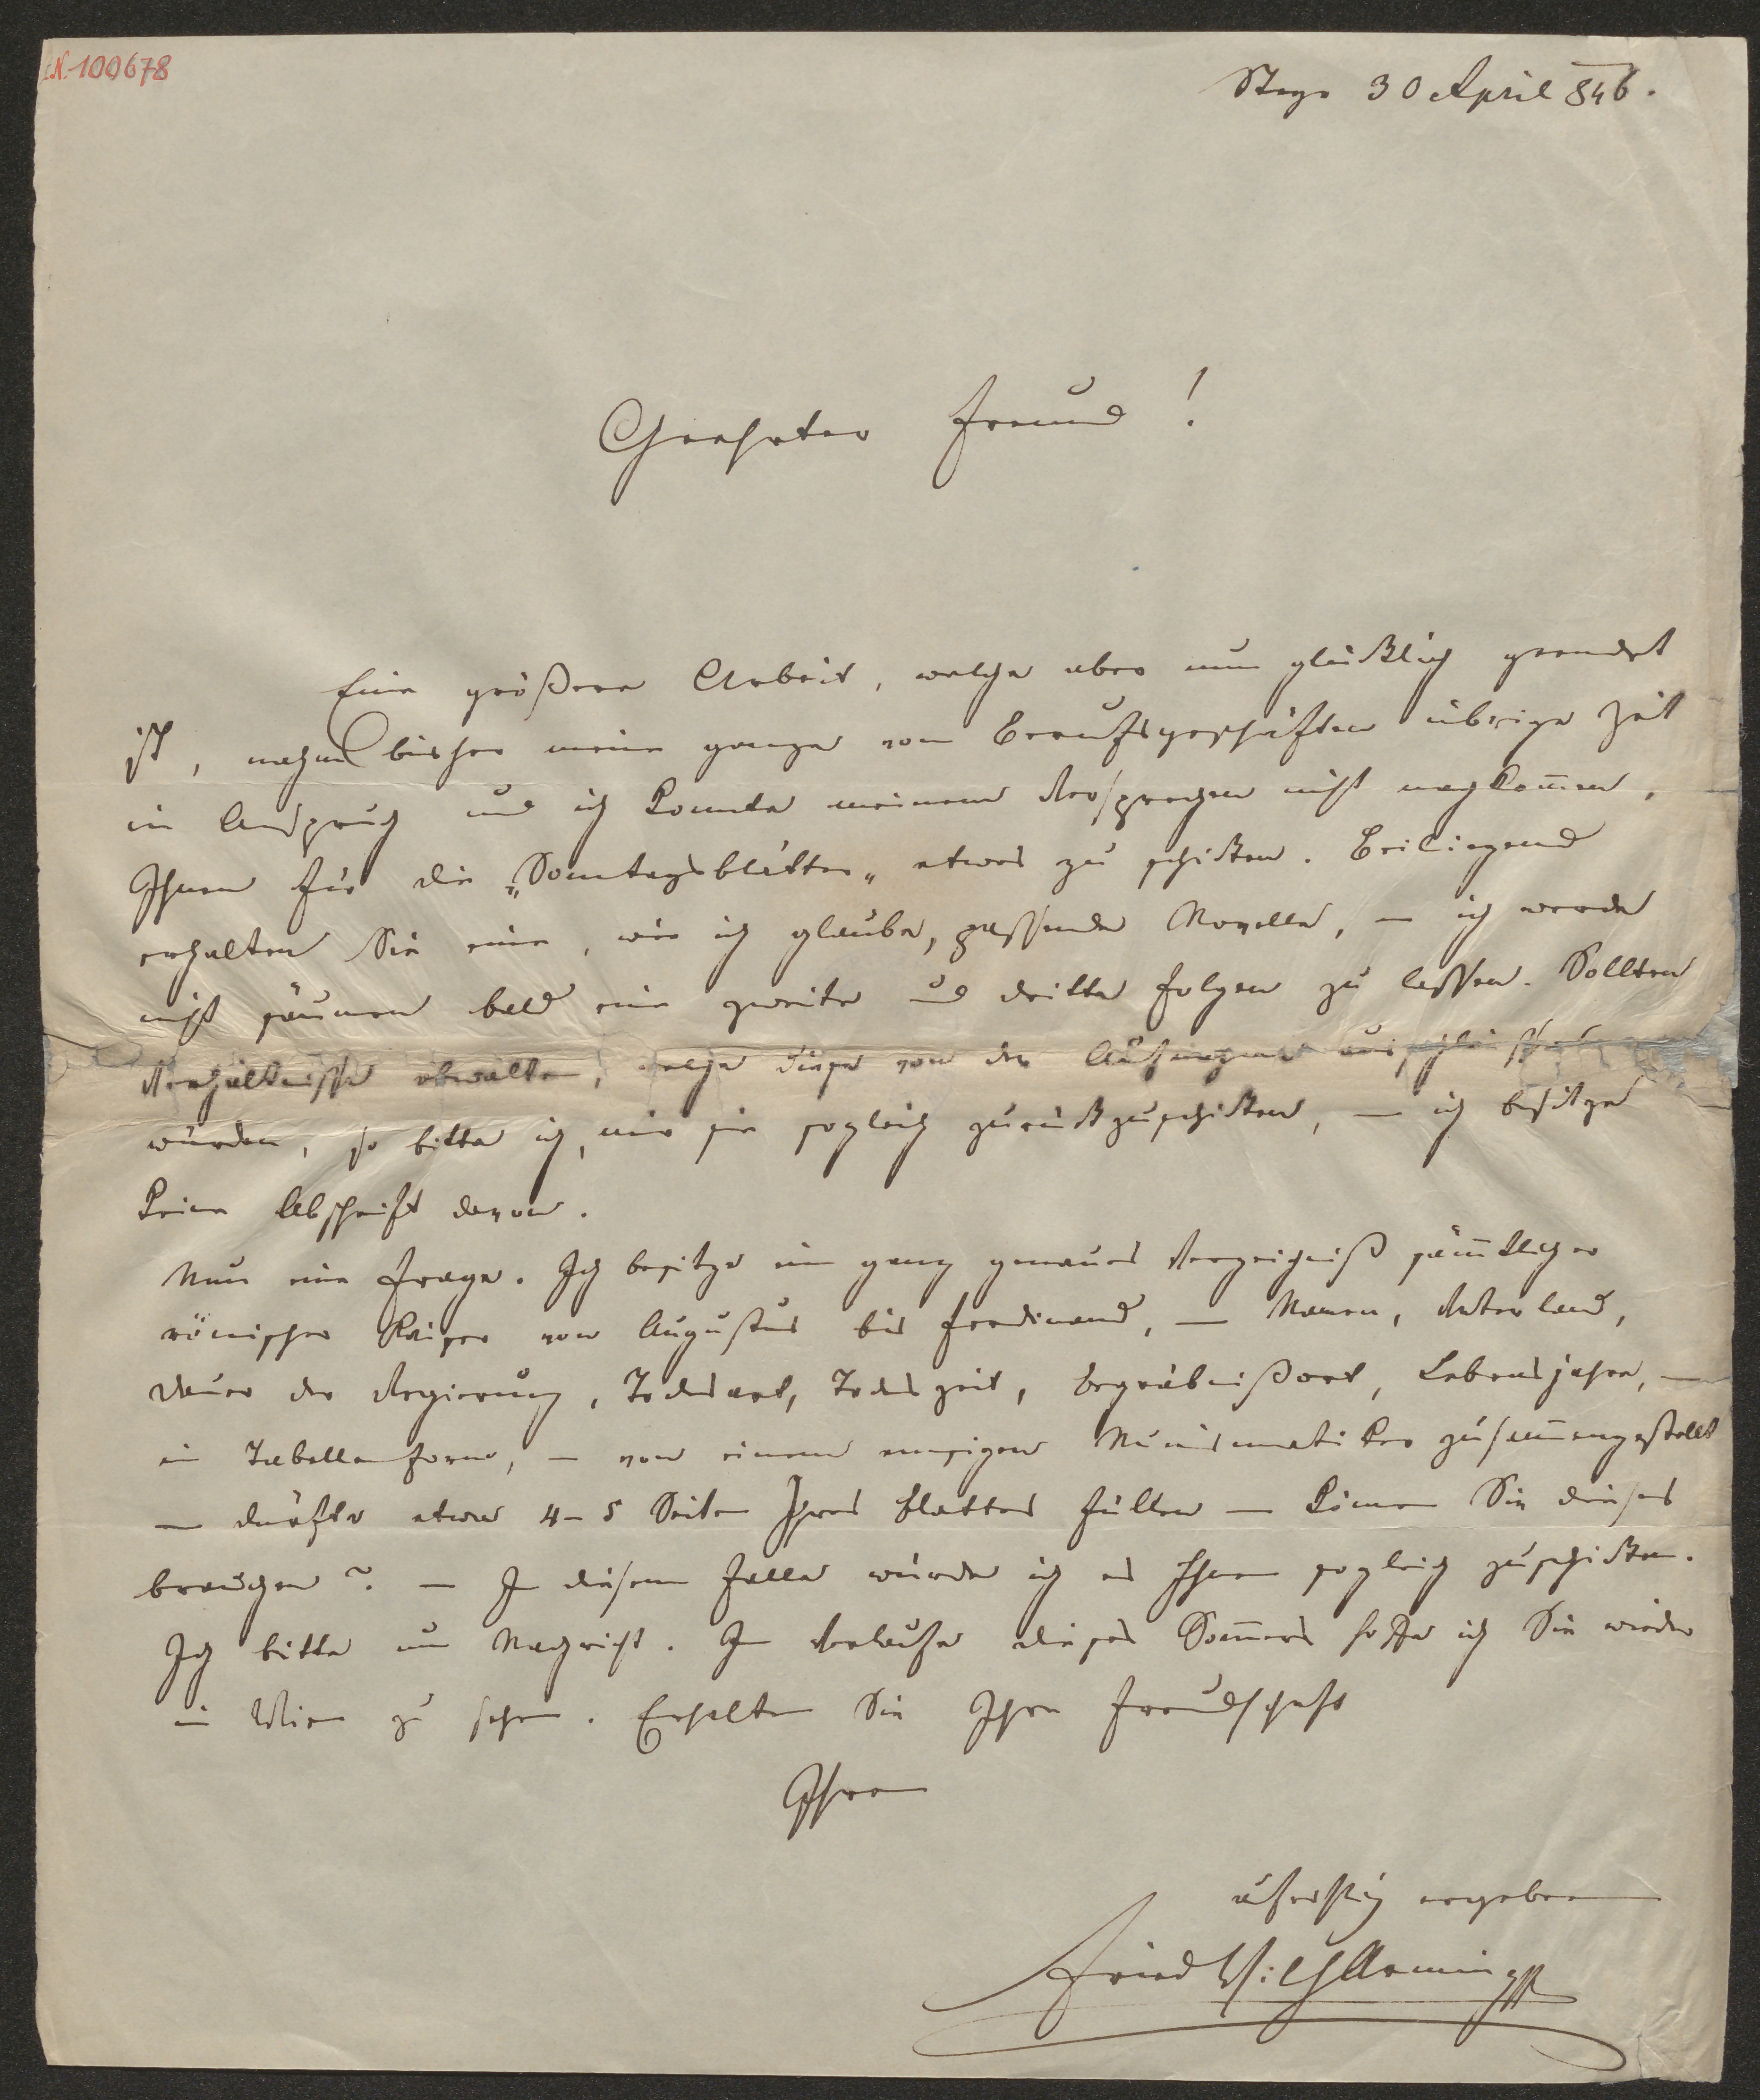 I.N. 100678
Steyr 30 April 846.
Geehrter Freund!
Eine größere Arbeit, welche aber nun glücklich geendet
ist, nahm bisher meine ganze von Berufsgeschäften übrige Zeit
in Anspruch und ich konnte meinem Versprechen nicht nachkom̅en,
Ihnen für die „Sonntagsblätter„ etwas zu schicken. Beiliegend
erhalten Sie eine, wie ich glaube, passende Novelle, — ich werde
nicht säumen bald eine zweite und dritte folgen zu lassen. Sollten
Verhältnisse obwalten, welche diese von der Aufnahme ausschließen
würden, so bitte ich, mir sie sogleich zurückzuschicken, — ich besitze
keine Abschrift davon.
Nun eine Frage. Ich besitze ein ganz genaues Verzeichniß säm̅tlicher
römischer Kaiser von Augustus bis Ferdinand, — Namen, Vaterland,
Dauer der Regierung, Todesart, Todeszeit, Begräbnißort, Lebensjahre, —
in Tabellenform, — von einem emsigen Numismatiker zusam̅engestellt
— dürfte etwa 4–5 Seiten Ihres Blattes füllen — könen Sie dieses
brauchen? — In diesem Falle würde ich es Ihnen sogleich zuschicken.
Ich bitte um Nachricht. Im Verlaufe dieses Som̅ers hoffe ich Sie wieder
in Wien zu sehen. Erhalten Sie Ihre Freundschaft
Ihrem
aufrichtig ergebenen
Fried Wilh Arming